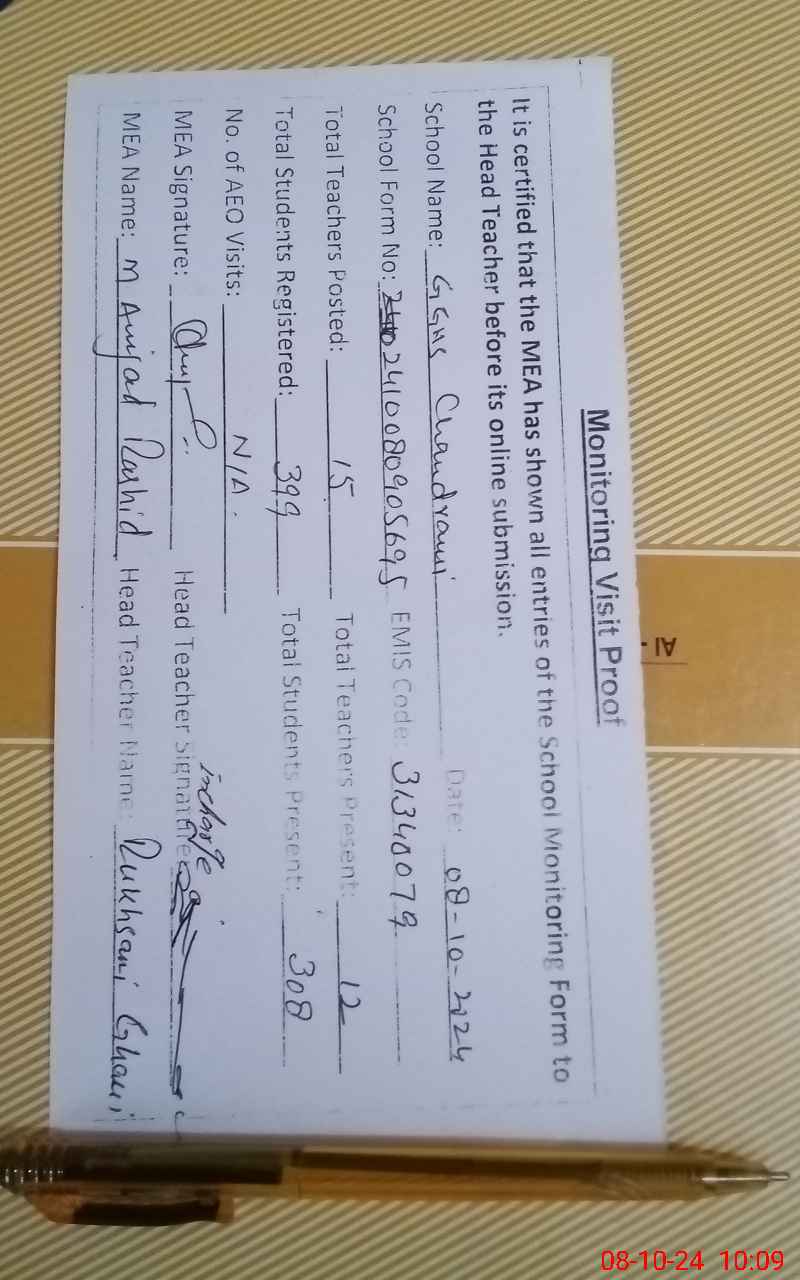 Monitoring Visit Proof
It is certified that the MEA has shown all entries of the School Monitoring Form to
the Head Teacher before its online submission.
School Name: GGHS Chandrami Date: 08-10-2024
School Form No: 2410080905695 EMIS Code: 31340079
Total Teachers Posted: 15 Total Teachers Present: 12
Total Students Registered: 399 Total Students Present: 308
No. of AEO Visits: N/A.
incharge
MEA Signature: Head Teacher Signature
MEA Name: M Amjad Rashid Head Teacher Name: Rukhsani Ghani
AI
08-10-24 10:09